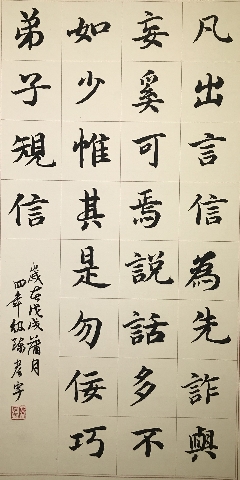 凡出言信為先詐與
妄奚可焉說話多不
如少惟其是勿佞巧
弟子規信
歲在戊戌蒲月
四年級